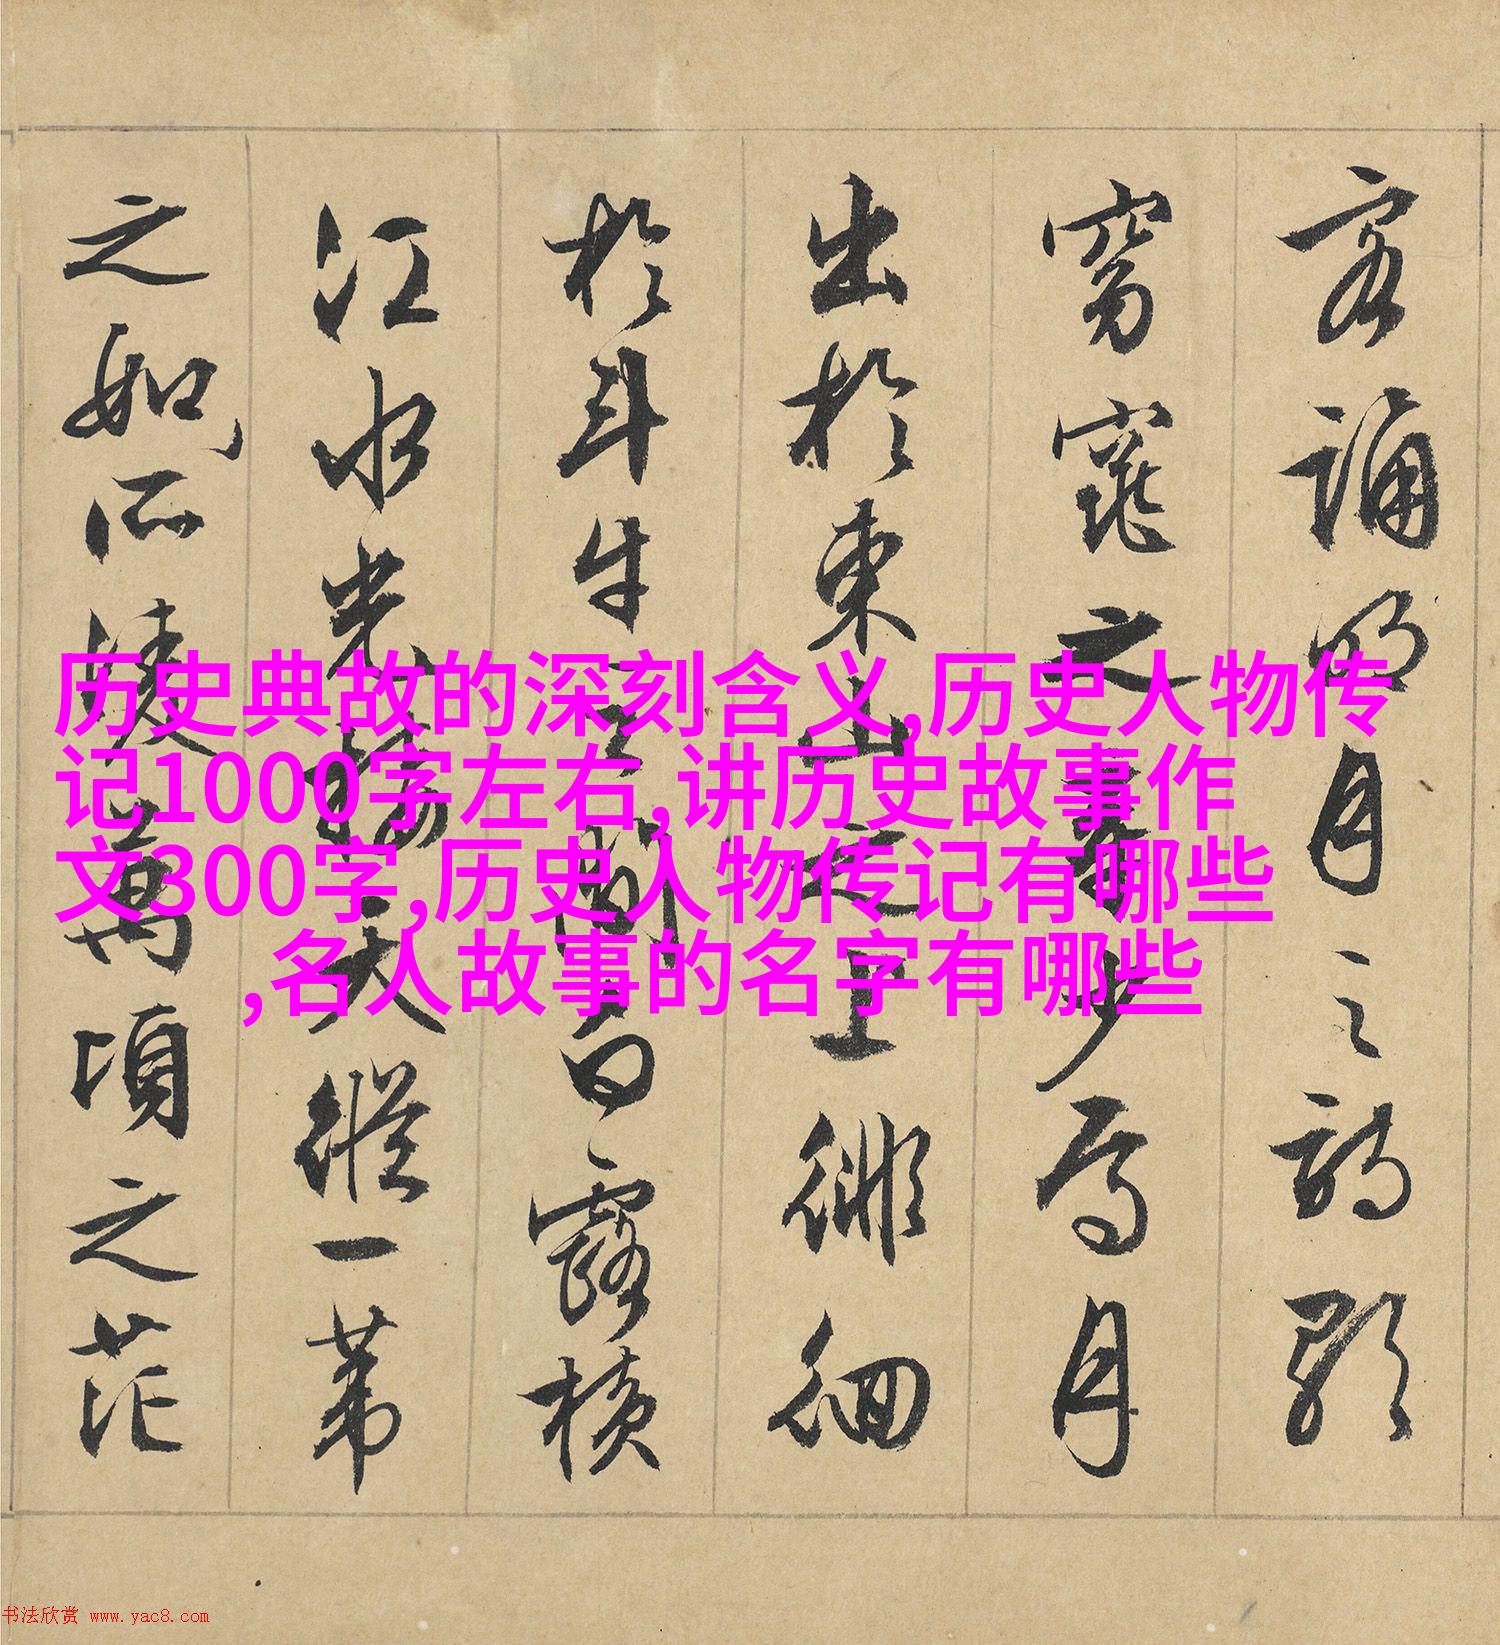 客誦明月之詩歌
窈窕之章少焉月
出於東山之上徘徊
於斗牛之間白露橫
江水光接天縱一葦
之如所凌萬頃之茫
历史典故的深刻含义,历史人物传
记1000字左右,讲历史故事作
文300字,历史人物传记有哪些
,名人故事的名字有哪些
书法欣赏 www.yac8.com